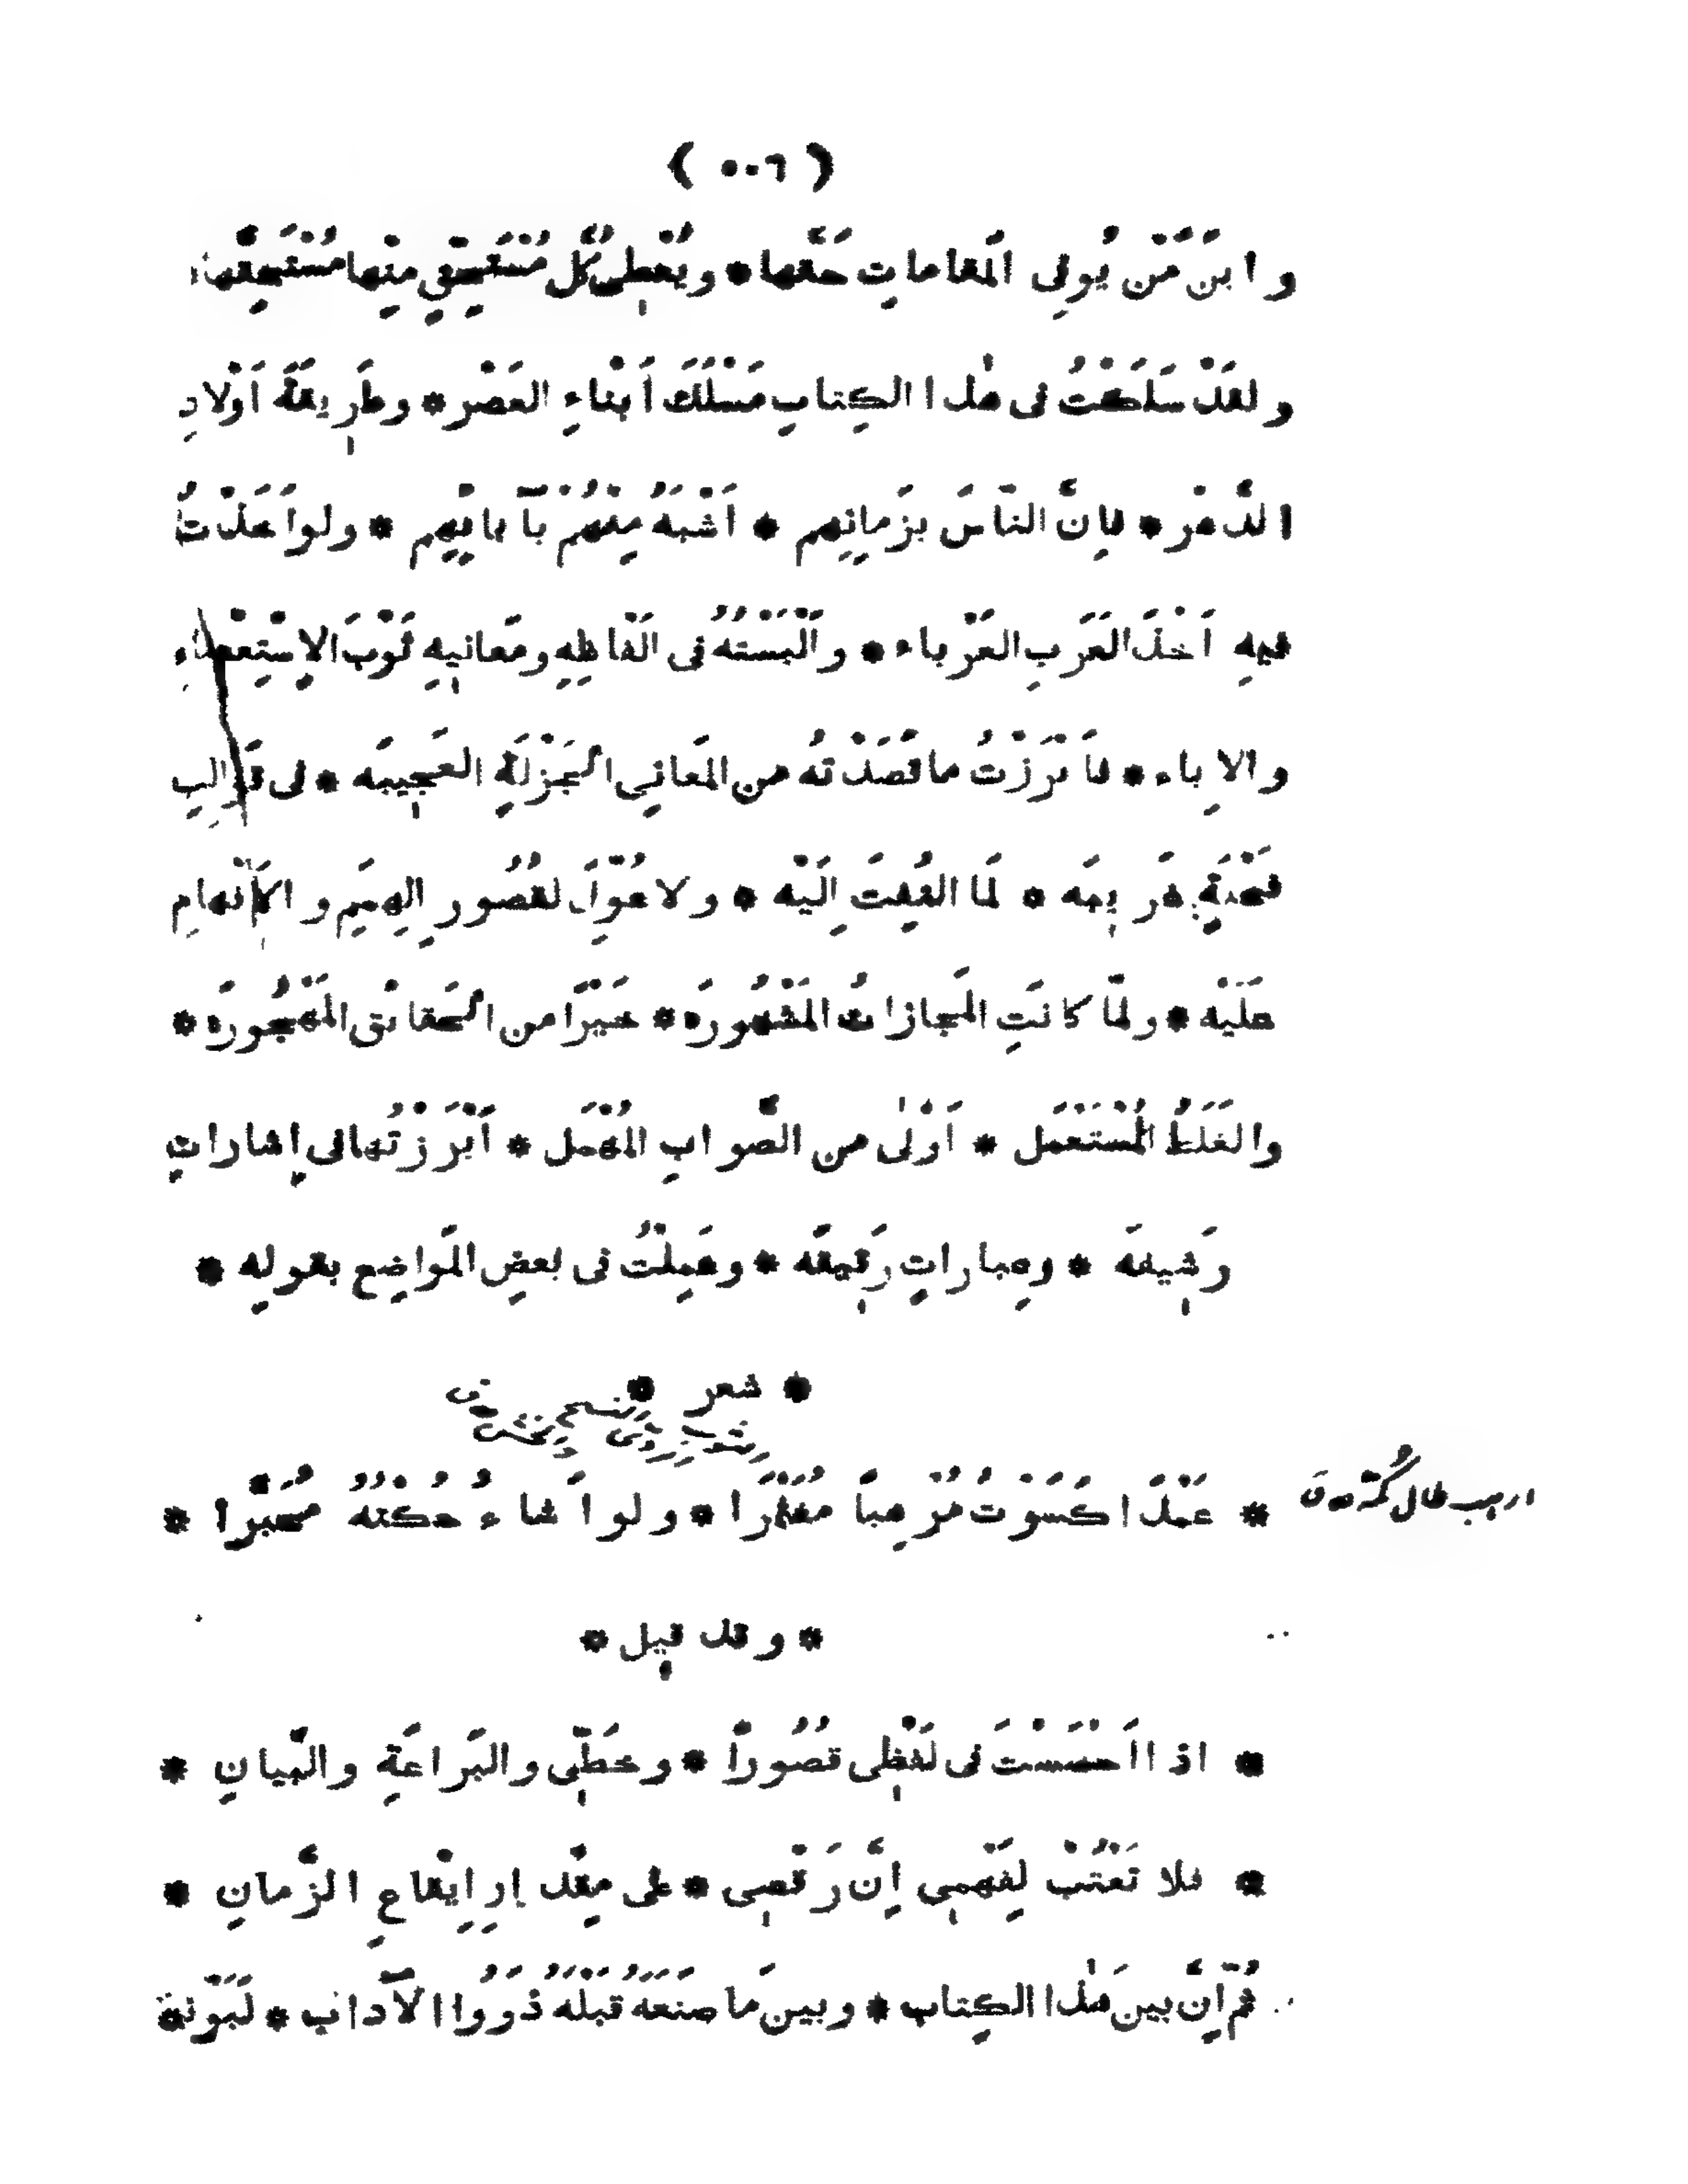 ( ٥٠٦ )
وابنَ مَنْ يُوفِی الْمَقاماتِ حَقَّها * ويُعْطِی كُلَّ مُسْتَحِقٍّ مِنْها مُسْتَحَقَّها
ولَقَدْ سَلَكْتُ فی هٰذا الكِتابِ مَسْلَكَ اَبْناءِ العَصْرِ * وطَرِيقَةَ اَوْلادِ
الدَّهْرِ * فاِنَّ النّاسَ بزَمانِهِم * اَشْبَهُ مِنْهُمْ بآبائِهِم * ولو اَخَذْتُ
فيهِ اَخْذَ العَرَبِ العَرْباء * واَلْبَسْتُهُ فی اَلْفاظِهِ ومَعانيهِ ثَوْبَ الاِسْتِعْصاءِ
والاِباء * فاَبْرَزْتُ ما قَصَدْتُهُ من المَعانِی الْجَزْلَةِ العَجِيبَه * فی قَوالِبِ
لَمَا الْتُفِتَ اِلَيْه * ولا عُوِّلَ لقُصُورِ الهِمَمِ والاَفْهامِ
عَلَيْه * ولَمّا كانَتِ المَجازاتُ المَشْهُورَه * خَيْرًا من الْحَقائق المَهْجُورَه *
والغَلَطُ الْمُسْتَعْمَل * اَوْلٰى من الصَّوابِ المُهْمَل * اَبْرَزْتُها فی اِشاراتٍ
رَشِيقَه * وعِباراتٍ رَقِيقَه * وعَمِلْتُ فی بعضِ المَواضِعِ بقولِه *
* شعر *
* عَمْدًا كَسَوْتُ مُرْهِبًا مُغَبَّرًا * ولو اَشاءُ حُكْتُهُ مُحَبَّرا *
* وقد قيل *
* اذا اَحْسَسْتَ فی لَفْظِی قُصُورًا * وخَطِّی والبَراعَةِ والبَيانِ *
* فلا تَعْتُبْ لِفَهْمِی اِنَّ رَقْصِی * على مِقْدارِ اِيْقاعِ الزَّمانِ *
ثُمَّ اِنَّ بين هٰذا الكِتاب * وبين ما صَنَعَهُ قَبْلَهُ ذَوُوا الآداب * لَبَوْنَة